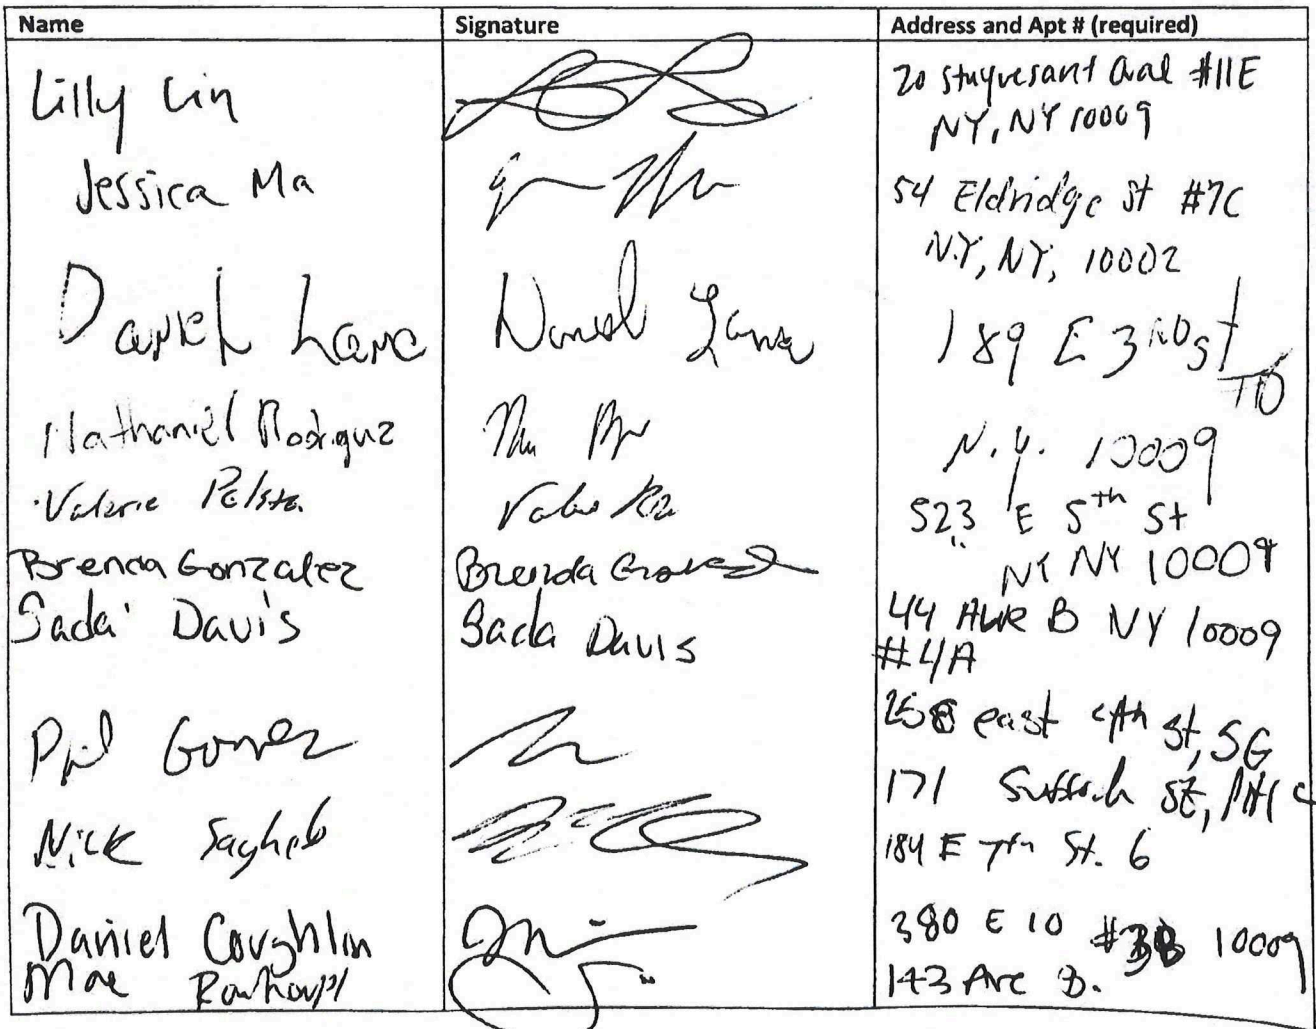 Name Signature Address and Apt # (required)
Lilly Lin 20 Stuyvesant Oval #11E
NY, NY 10009
Jessica Ma 54 Eldridge St #7C
N.Y, NY, 10002
Daniel Lane Daniel Lane 189 E 3RD St
N.Y. 10009
Nathaniel Rodriguz
Valerie 523 E 5th St
NY NY 10009
Brenda Gonzalez Brenda
Sada' Davis Sada Davis 44 Ave B NY 10009
#4A
Gomez 258 east 4th st, 5G
171 Suffolk St,
Nick Sagheb 184 E 7th St. 6
Daniel Coughlin 380 E 10 #3B 10009
Mae 143 Ave B.